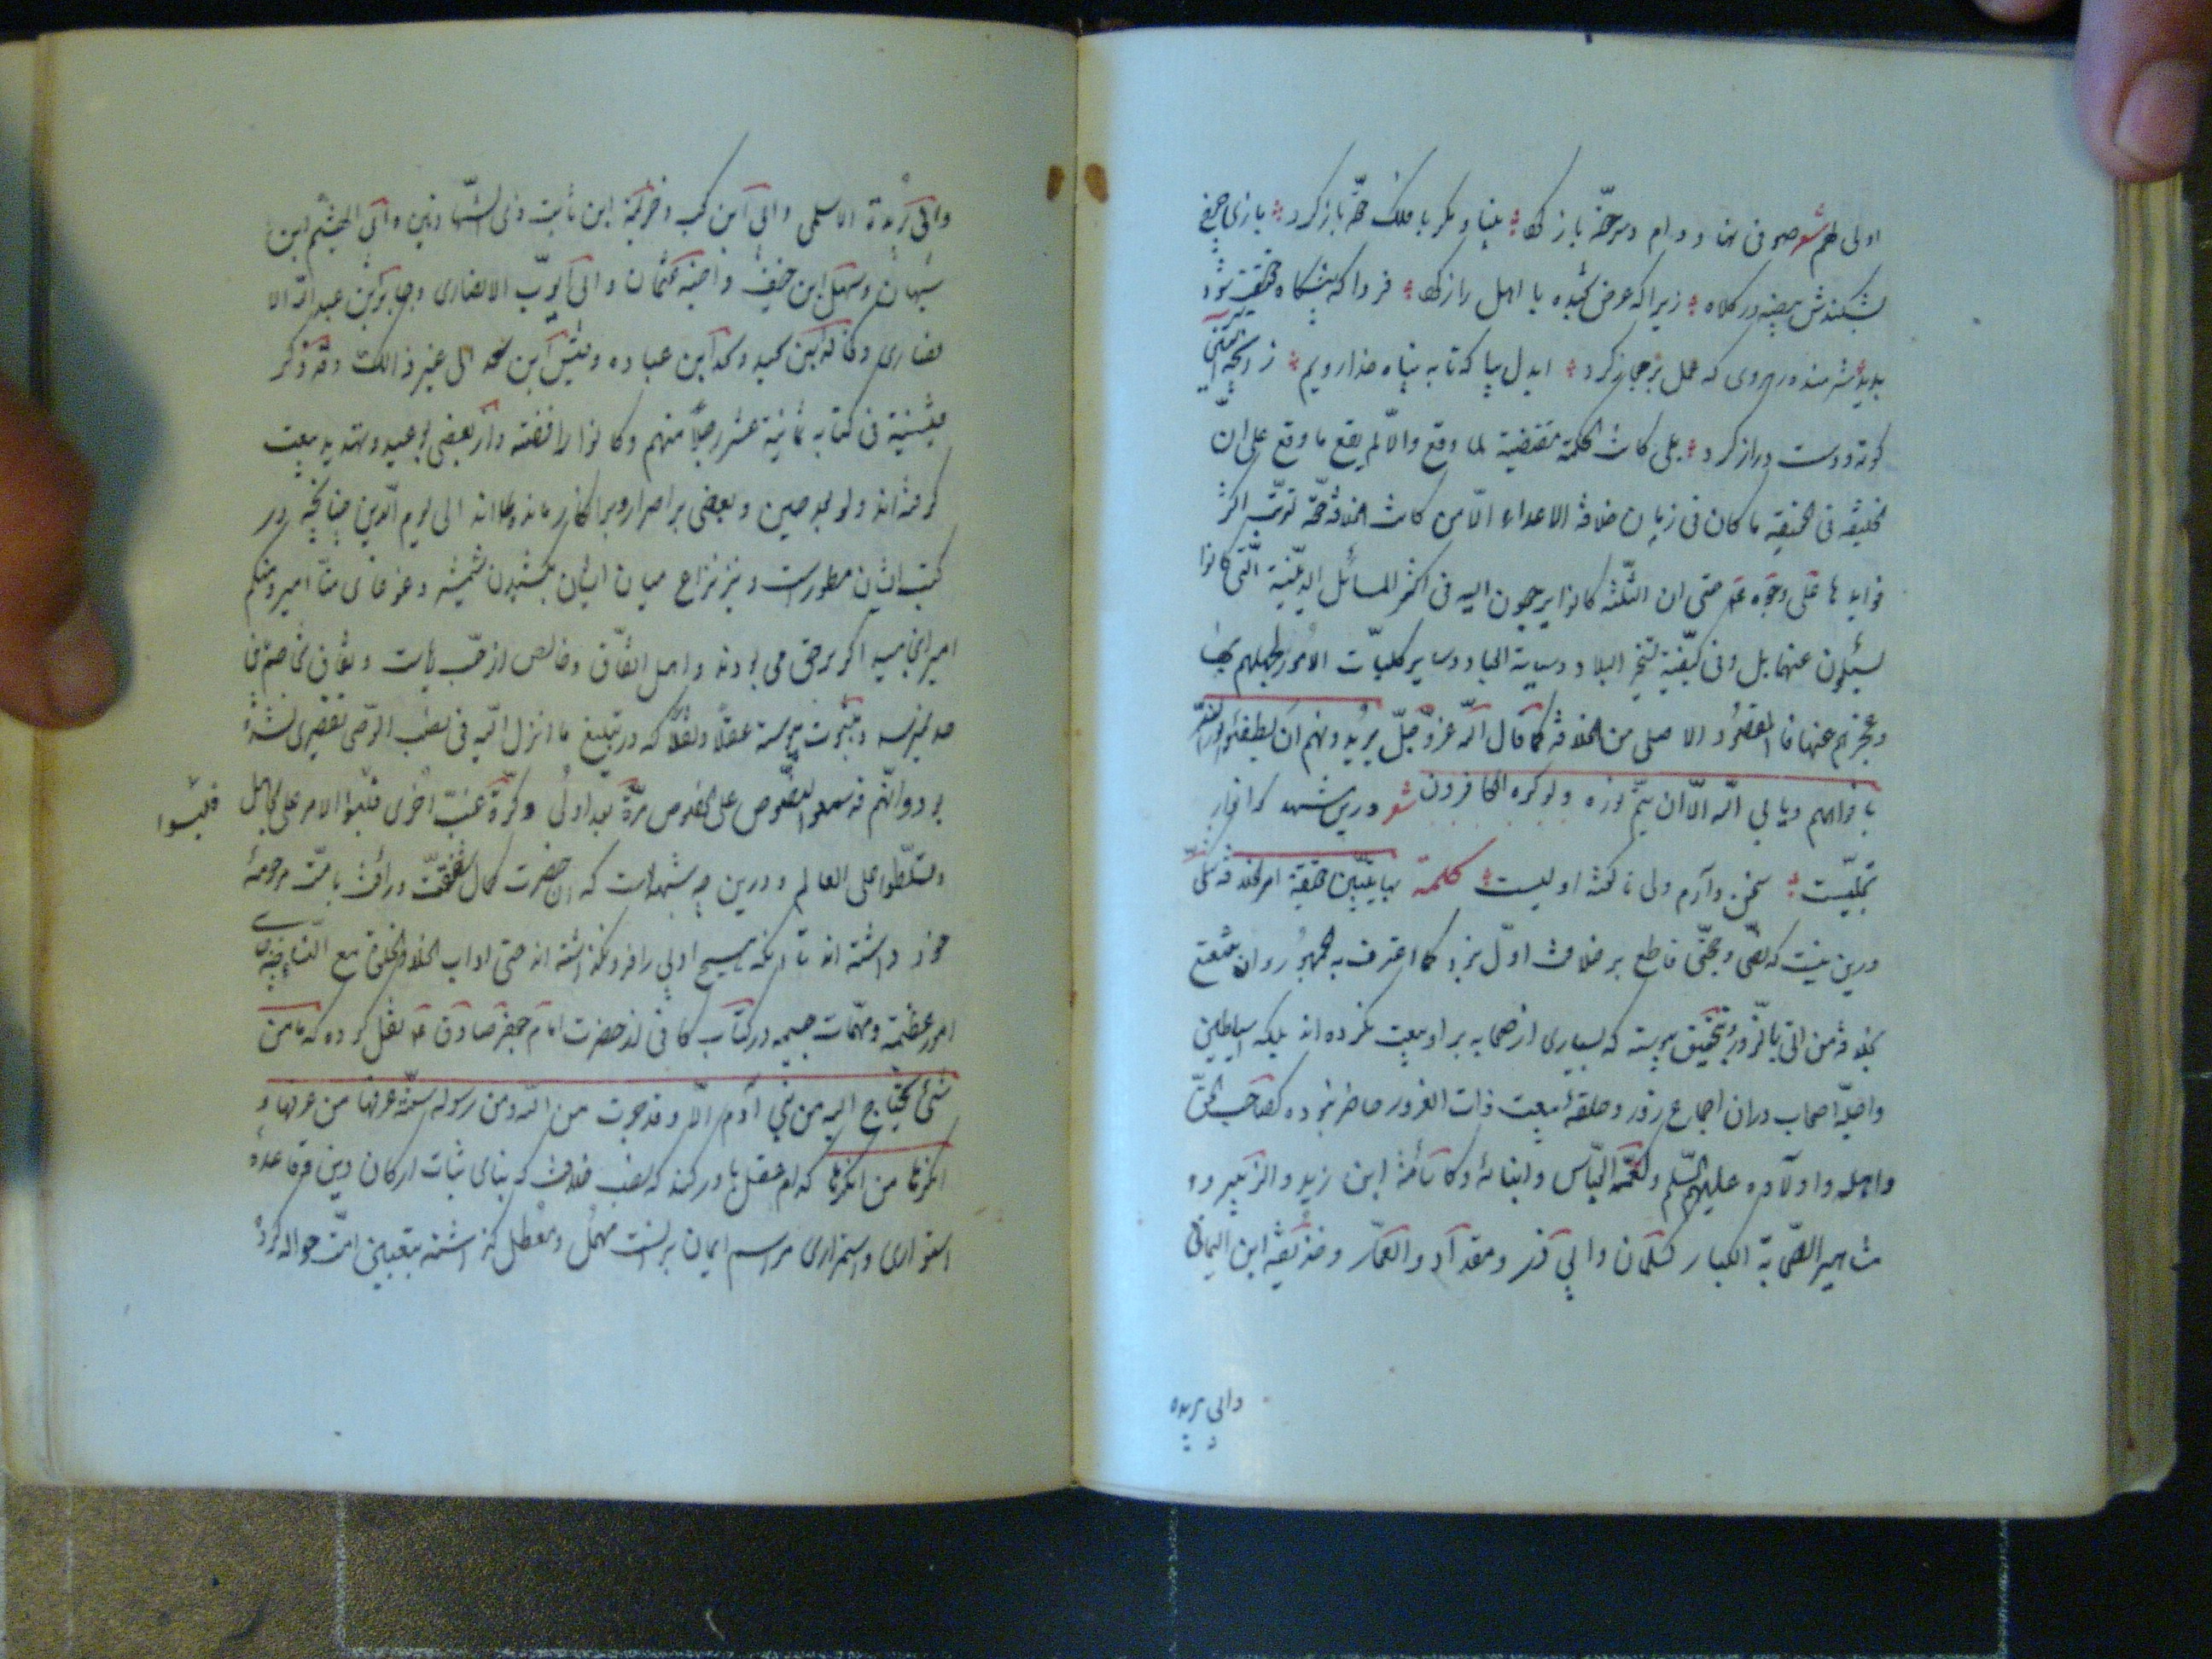 اولی لهم شعر صوفی نهاد دام و سر حقه باز کرد بنیاد مکر با فلک حقه باز کرد بازی چرخ
بشکندش بیضه در کلاه زیرا که عرض شعبده با اهل راز کرد فردا که پیشگاه حقیقت شود
پدید شرمنده رهروی که عمل بر مجاز کرد ایدل بیا که تا به پناه خدا رویم ز آنچه آستین
کوته و دست دراز کرد بلی کانت الحکمة مقتضیة لما وقع والّا لم یقع ما وقع علی انّ
الخلیفه فی الحقیقه ما کان فی زمان خلافة الاعداء الّا من کانت الخلافة حقّه لترتّب اکثر
فوایدها علی وجوده حتی ان الثلثه کانوا یرجعون الیه فی اکثر المسائل الدینیّة الّتی کانوا
یسئلون عنها بل و فی کیفیّة تسخیر البلاد و سیاسة العباد و سایر کلیّات الامور لجهلهم بها
و عجزهم عنها فالمقصود الاصلی من الخلافة کما قال الله عزّ و جلّ یریدون ان یطفئوا نور الله
بافواههم ویابی الله الّا ان یتمّ نوره ولو کره الکافرون شعر درین مشهد که انوار
تجلیست سخن دارم ولی ناکفتن اولیست کلمة بها یتبیّن حقیقة امر الخلافة شکّی
درین نیست که نصّی و حجّتی قاطع بر خلافت اوّل نبود کما اعترف به الجمهور و ان تشبّع
بخلافة من اتی بالزّور و بتحقیق پیوسته که بسیاری از صحابه بر او بیعت نکرده اند بلکه اساطین
و اجلّه اصحاب دران اجماع زور و حلقهٔ بیعت ذات الغرور حاضر نبوده کصاحب الحقّ
واهله واولاده علیهم السّلم و لعمّه العبّاس وابنائه وکاسامة ابن زید والزّبیر و
مشاهیر الصّحابة الکبار کسلمان وابی ذر ومقداد والعمّار وحذیفة ابن الیمانی
وابی بریده
وابی بریدة الاسلمی وابی ابن کعب وخزیمة ابن ثابت ذی الشّهادتین وابی الهیثم ابن
تیهان وسهل ابن حنیف واخیه عثمان وابی ایوّب الانصاری وجابر ابن عبد الله الا
نصاری وخالد ابن سعید وسعد ابن عباده وقیس ابن سعد الی غیر ذالک وقد ذکر
قتیبة فی کتابه ثمانیة عشر رجلاً منهم وکانوا رافضة و از بعضی بوعید و تهدید بیعت
کرفته اند ولو بعد حین و بعضی بر اصرار و بر انکار مانده اند الی یوم الدّین چنانچه در
کتب ایشان مسطورست و نیز نزاع میان ایشان بکشیدن شمشیر و غوغای منّا امیر و منکم
امیر انجامید اکر بر حق می بودند و اهل اتّفاق و خالص از حبّ ریاست و نفاق مخاصمه
صد نمیرسید و بثبوت پیوسته عقلاً و نقلاً که در تبلیغ ما انزل الیه فی نصب الوصّی تقصیری نشده
بود وانّهم قد سمعوا النصوص علی الخصوص مرّة بعد اولی وکرّة غبّ اخری فلبّسوا الامر علی الجاهل
فلبّسوا
وتسلّطوا علی العالم و درین چه شبهه است که آن حضرت کمال شفقت و رأفت با امّت مرحومهٔ
خود داشته اند تا آنکه هیچ ادبی را فرو نکذاشته اند حتی اداب الخلاء والخلوة مع النّساء
امور عظیمة و مهمّات جسیمه در کتاب کافی از حضرت امام جعفر صادق ع نقل کرده که ما من
شیء یحتاج الیه من بنی آدم الّا وقد جرت من الله ومن رسوله سنّة عرفها من عرفها و
انکرها من انکرها کدام عقل باور کند که نصب خلافت که بنای ثبات ارکان دین و قاعدهٔ
استواری و استمراری مراسم ایمان بر آنست مهمل و معطل کذاشته بتعیین امّت حواله کرده